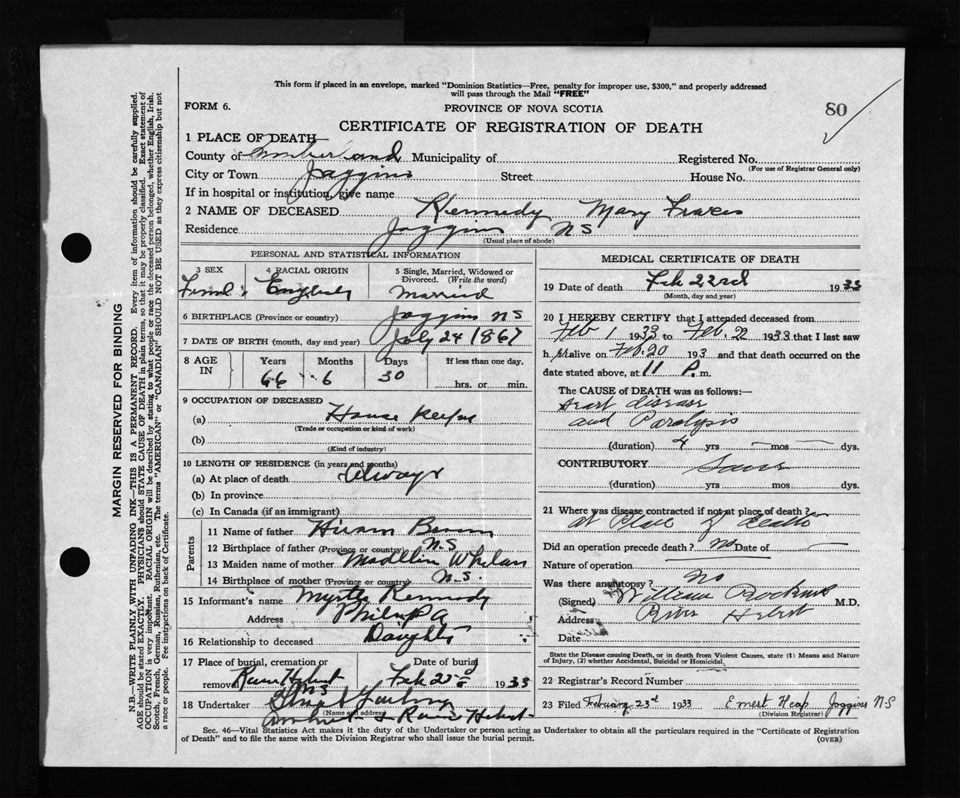 This form if placed in an envelope, marked "Dominion Statistics—Free, penalty for improper use, $300," and properly addressed
will pass through the Mail "FREE"
FORM 6.
PROVINCE OF NOVA SCOTIA
80
CERTIFICATE OF REGISTRATION OF DEATH
1 PLACE OF DEATH—
County of Cumberland Municipality of Registered No.
(For use of Registrar General only)
City or Town Joggins Street House No.
If in hospital or institution, give name
2 NAME OF DECEASED Kennedy Mary
Residence Joggins NS
(Usual place of abode)
PERSONAL AND STATISTICAL INFORMATION
3 SEX 4 RACIAL ORIGIN 5 Single, Married, Widowed or Divorced. (Write the word)
English Married
6 BIRTHPLACE (Province or country) Joggins NS
7 DATE OF BIRTH (month, day and year) July 24 1867
8 AGE IN Years Months Days If less than one day,
66 6 30 hrs. or min.
9 OCCUPATION OF DECEASED
(a) House
(Trade or occupation or kind of work)
(b)
(Kind of industry)
10 LENGTH OF RESIDENCE (in years and months)
(a) At place of death Always
(b) In province
(c) In Canada (if an immigrant)
Parents
11 Name of father Hiram
12 Birthplace of father (Province or country) N.S
13 Maiden name of mother Whelan
14 Birthplace of mother (Province or country) N.S.
15 Informant's name Myrtle Kennedy
Address
16 Relationship to deceased Daughter
17 Place of burial, cremation or removal River Hebert NS Date of burial Feb 25 1933
18 Undertaker
(Name and address)
Amherst & River Hebert
MEDICAL CERTIFICATE OF DEATH
19 Date of death Feb 22nd 1933
(Month, day and year)
20 I HEREBY CERTIFY that I attended deceased from
Feb 1 1933 to Feb. 22 1933 that I last saw
h alive on Feb. 20 193 and that death occurred on the
date stated above, at 11 P. m.
The CAUSE OF DEATH was as follows:—
Heart disease
and Paralysis
(duration) 4 yrs — mos — dys.
CONTRIBUTORY
(duration) yrs. mos. dys.
21 Where was disease contracted if not at place of death?
at Place of death
Did an operation precede death? no Date of —
Nature of operation —
Was there an autopsy? no
(Signed) William M.D.
Address River Hebert
Date
State the Disease causing Death, or in death from Violent Causes, state (1) Means and Nature
of Injury, (2) whether Accidental, Suicidal or Homicidal.
22 Registrar's Record Number
23 Filed February 23rd 1933 Ernest Heap Joggins NS
(Division Registrar)
Sec. 46—Vital Statistics Act makes it the duty of the Undertaker or person acting as Undertaker to obtain all the particulars required in the "Certificate of Registration
of Death" and to file the same with the Division Registrar who shall issue the burial permit.
(OVER)
MARGIN RESERVED FOR BINDING
N.B.—WRITE PLAINLY WITH UNFADING INK—THIS IS A PERMANENT RECORD. Every item of information should be carefully supplied.
AGE should be stated EXACTLY. PHYSICIANS should STATE CAUSE OF DEATH in plain terms, so that it may be properly classified. Exact statement of
OCCUPATION is very important. RACIAL ORIGIN will be described by stating to what people or race the deceased person belonged, whether English, Irish,
Scotch, French, German, Russian, Ruthenian, etc. The terms "AMERICAN" or "CANADIAN" SHOULD NOT BE USED as they express citizenship but not
a race or people. See instructions on back of Certificate.